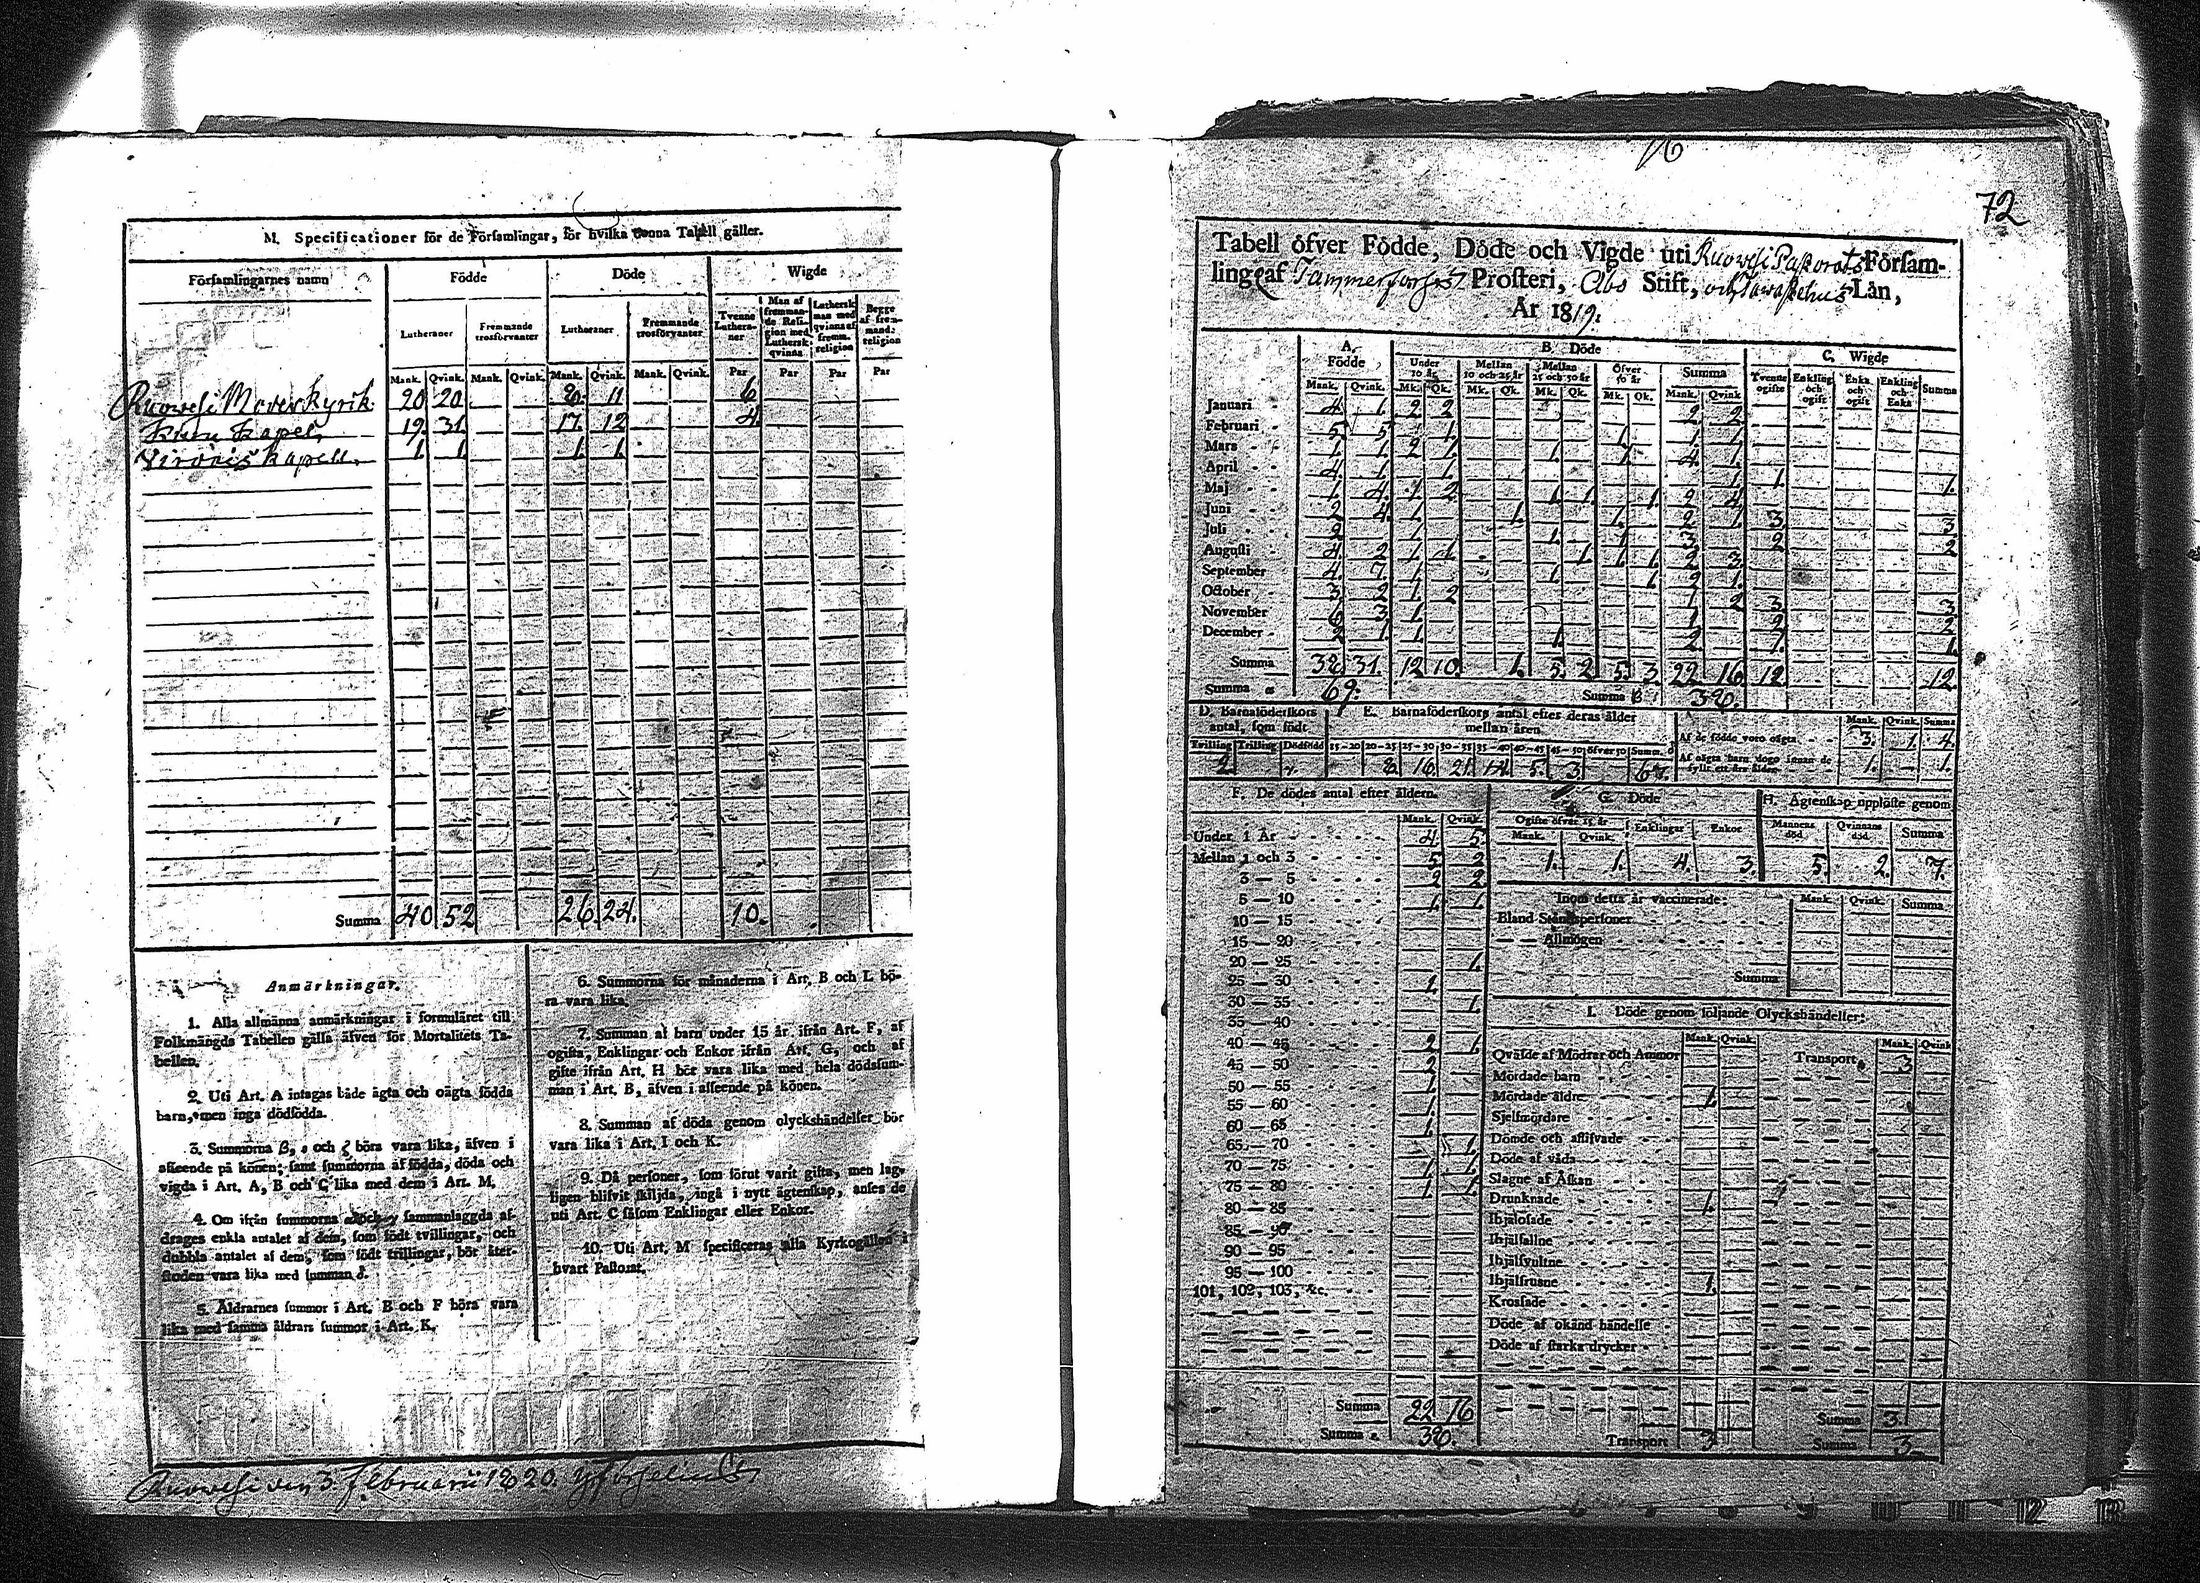 M. Specificationer för de Församlingar, för hvilka denna Tabell gäller.
Församlingarnes namn Födde Döde Wigde
Lutheraner Fremmande trosförvanter Lutheraner Fremmande trosförvanter Tvenne Lutheraner Man af fremmande Religion med Luthersk qvinna Luthersk man med qvinna af fremm. religion Begge af fremmande religion
Mank. Qvink. Mank. Qvink. Mank. Qvink. Mank. Qvink. Par Par Par Par
Ruovesi Moderkyrk. 20 20 8. 11 6
Kuru Kapel, 19. 31 17. 12 4.
Kapell. 1. 1. 1. 1.
Summa 40 52 26. 24. 10.
Anmärkningar.
1. Alla allmänna anmärkningar i formuläret till
Folkmängds Tabellen gälla äfven för Mortalitets Ta-
bellen.
2. Uti Art. A intagas både ägta och oägta födda
barn, men inga dödfödda.
3. Summorna β, ε och ζ böra vara lika, äfven i
affeende på könen; samt summorna af födda, döda och
vigda i Art. A, B och C lika med dem i Art. M.
4. Om ifrån summorna α och γ sammanlaggda af-
drages enkla antalet af dem, som födt tvillingar, och
dubbla antalet af dem, som födt trillingar, bör åter-
stoden vara lika med summan δ.
5. Åldrarnes summor i Art. B och F böra vara
lika med samma åldrars summor i Art. K.
6. Summorna för månaderna i Art. B och L bö-
ra vara lika.
7. Summan af barn under 15 år ifrån Art. F, af
ogifta, Enklingar och Enkor ifrån Art. G, och af
gifte ifrån Art. H bör vara lika med hela dödssum-
man i Art. B, äfven i affeende på könen.
8. Summan af döda genom olyckshändelser bör
vara lika i Art. I och K.
9. Då personer, som förut varit gifta, men lag-
ligen blifvit skiljda, ingå i nytt ägtenskap, anses de
uti Art. C såsom Enklingar eller Enkor.
10. Uti Art. M specificeras alla Kyrkogällen i
hvart Pastorat.
Ruovesi den 3. Februarii 1820.
16
72
Tabell öfver Födde, Döde och Vigde uti Ruovesi Pastorats Församling
af Tammerfors Prosteri, Åbo Stift, och Tavastehus Län,
År 1819.
A. Födde B. Döde C. Wigde
Under 10 år Mellan 10 och 25 år Mellan 25 och 50 år Öfver 50 år Summa Tvenne ogifte Enkling och ogift Enka och ogift Enkling och Enka Summa
Mank. Qvink. Mk. Qk. Mk. Qk. Mk. Qk. Mk. Qk. Mank. Qvink
Januari 4. 1. 2 2 2 2
Februari 5. 5. 1. 1. 1. 1.
Mars 1. 1. 2 1. 1. 1. 4. 1.
April 4. 1. 1. 1. 1. 1.
Maj 1. 4. 1 2 1. 1. 1. 2 4.
Juni 2 4. 1. 1. 1. 2. 1. 3. 3
Juli 2 1. 1. 1. 1. 3. 2 2
Augusti 4. 2 1. 1. 1. 1. 1. 2 3.
September 4. 7. 1. 1. 1. 2 1.
October 3. 2 1. 2 1. 2 3. 3
November 6 3. 1. 1. 2 2
December 2 1. 1. 1. 2. 1. 1.
Summa 38 31. 12 10. 1. 5. 2 5. 3 22 16 12 12.
Summa α 69. Summa β 38.
D. Barnaföderskors antal, som födt E. Barnaföderskors antal efter deras ålder mellan åren
Tvilling Trilling Dödfödd 15—20 20—25 25—30 30—35 35—40 40—45 45—50 öfver 50 Summ. δ
2. 8. 16. 21. 14. 5. 3. 67.
Mank. Qvink. Summa
Af de födde voro oägta 3. 1. 4.
Af oägta barn dogo innan de fyllt ett års ålder 1. — 1.
F. De dödes antal efter åldern.
Mank. Qvink.
Under 1 År 4. 5.
Mellan 1 och 3 5. 2
3 — 5 2 2
5 — 10 1. 1.
10 — 15
15 — 20
20 — 25 1.
25 — 30 1.
30 — 35 1.
35 — 40
40 — 45 2 1.
45 — 50 2
50 — 55 1.
55 — 60 1.
60 — 65 1.
65 — 70 1.
70 — 75 1. 1.
75 — 80 1. 1.
80 — 85
85 — 90
90 — 95
95 — 100
101, 102, 103, &c.
Summa 22 16
Summa ε 38.
G. Döde
Ogifte öfver 15 år Enklingar Enkor
Mank. Qvink.
1. 1. 4. 3.
H. Ägtenskap upplöste genom
Mannens död Qvinnans död Summa
5. 2. 7.
Inom detta år vaccinerade: Mank. Qvink. Summa
Bland Ståndspersoner
— — Allmogen
Summa
I. Döde genom följande Olyckshändelser:
Mank. Qvink. Mank. Qvink
Qväfde af Mödrar och Ammor Transport 3
Mördade barn
Mördade äldre 1.
Sjelfmördare
Dömde och aflifvade
Döde af våda
Slagne af Åskan
Drunknade 1.
Ihjälosade
Ihjälfallne
Ihjälsvultne
Ihjälfrusne 1.
Krossade
Döde af okänd händelse
Döde af starka drycker
Summa 3.
Transport 3 Summa 3.